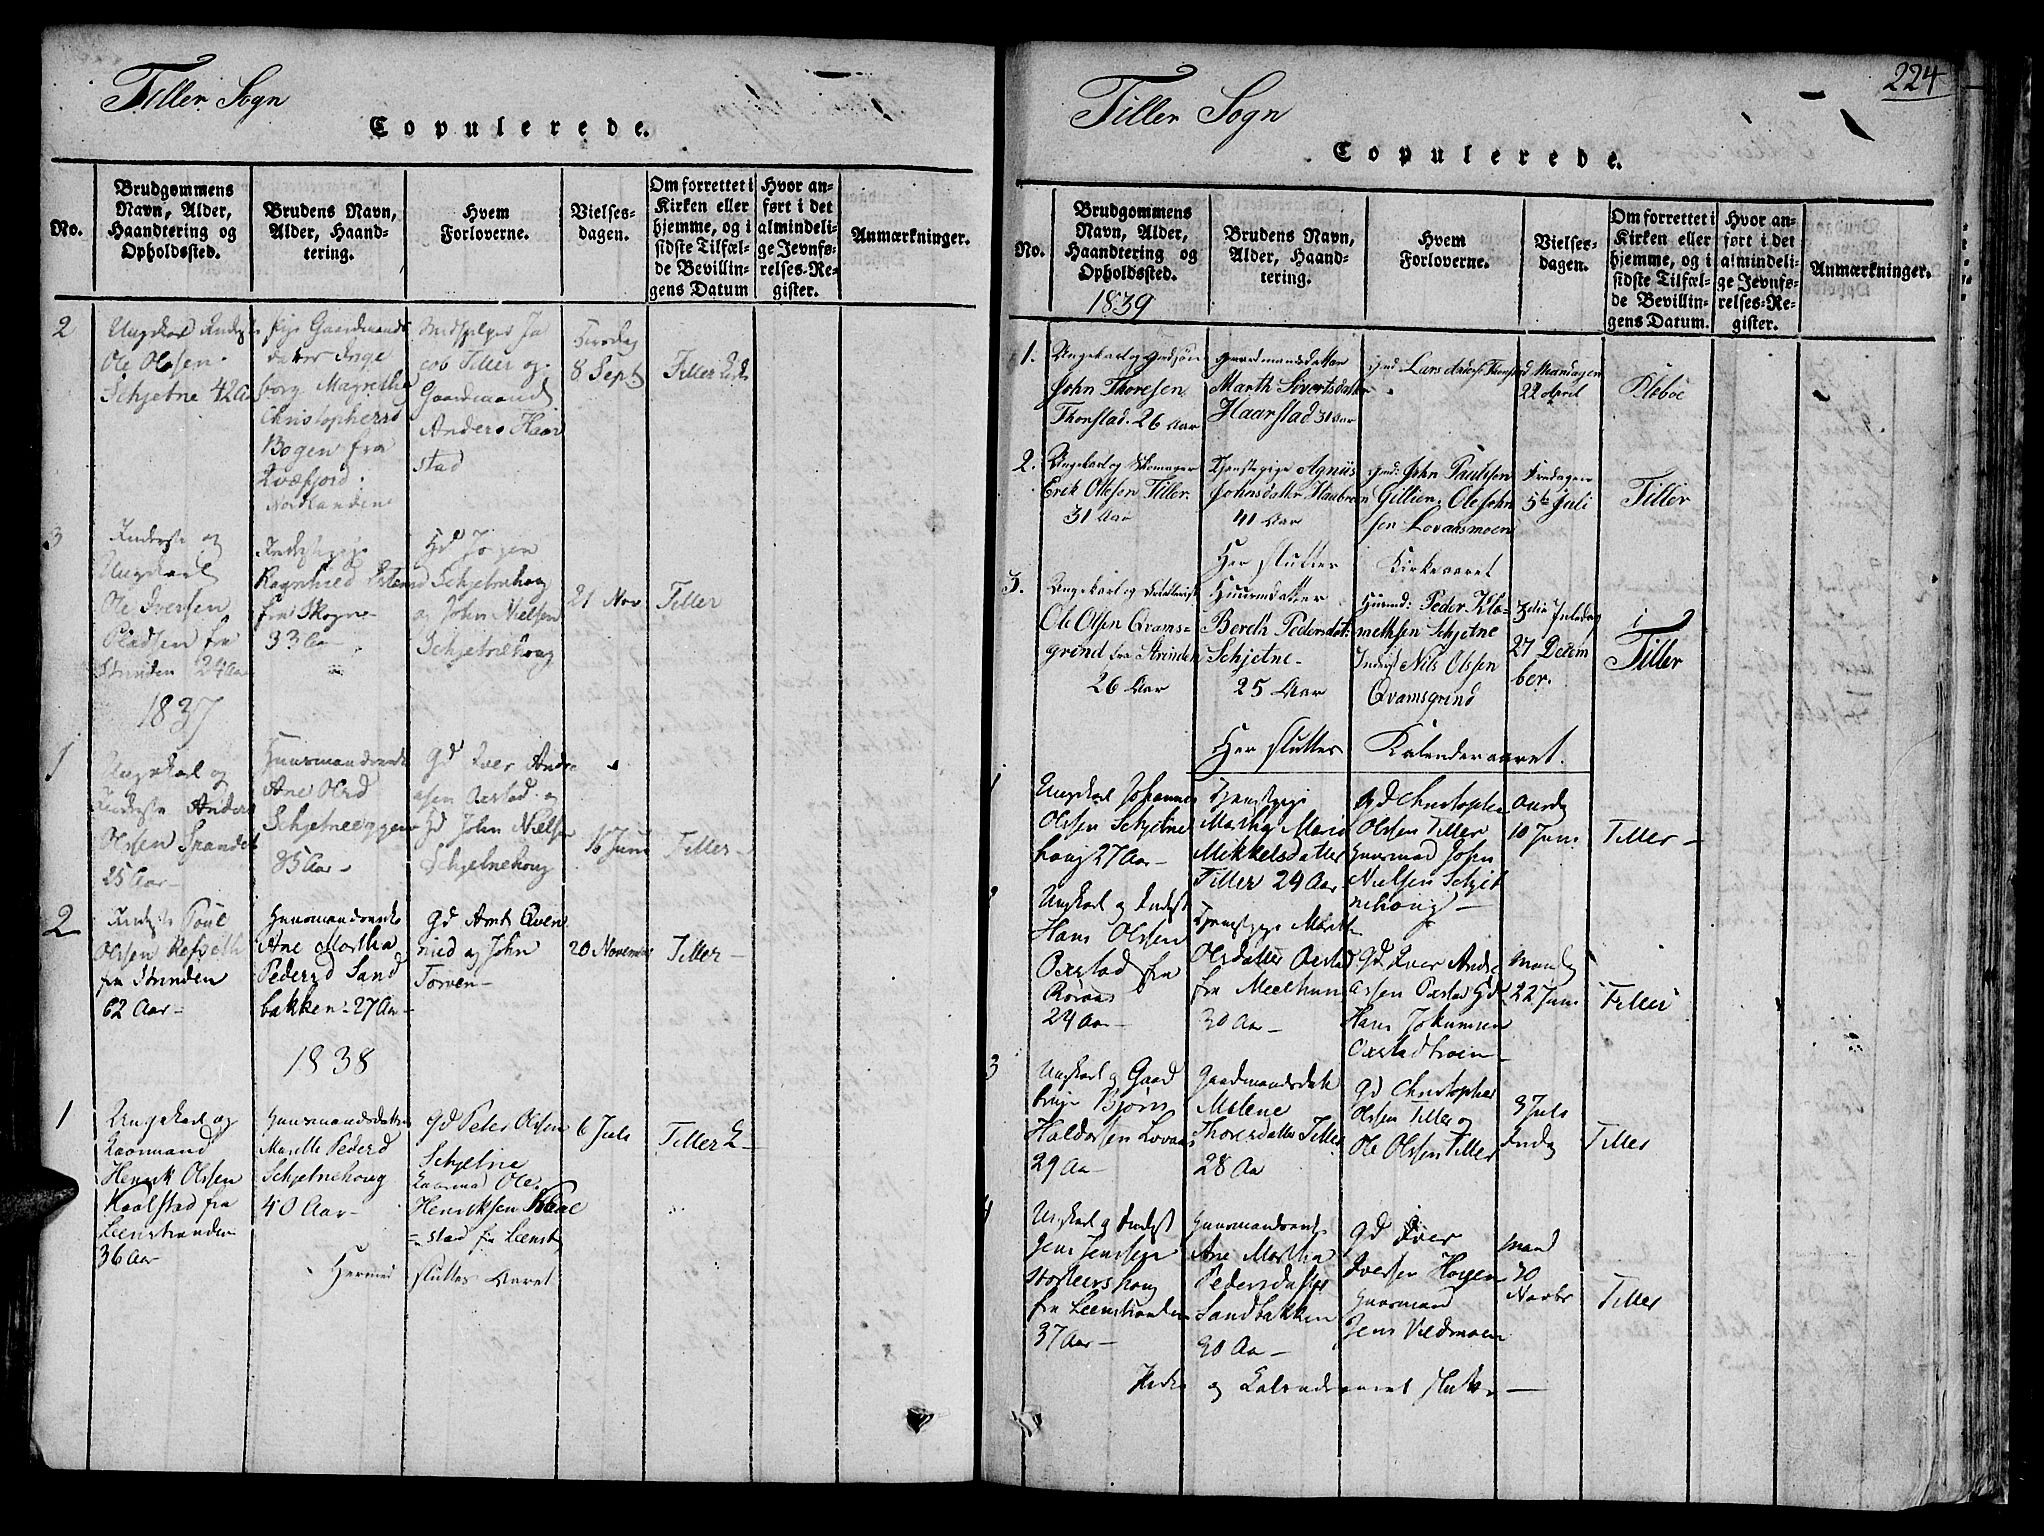 Tiller Sogn
Copulerede.
No.
Brudgommens
Navn, Alder,
Haandtering og
Opholdssted.
Brudens Navn,
Alder, Haand-
tering.
Hvem
Forloverne.
Vielses-
dagen.
Om forrettet i
Kirken eller
hjemme, og i
sidste Tilfæl-
de Bevillin-
gens Datum
Hvor an-
ført i det
almindeli-
ge Jevnfø-
relses-Re-
gister.
Anmærkninger.
2
Ungekarl
Ole Olssen
Schjetne 42 Aar
Gaardmands
datter Inge
borg Magrethe
Christophersd
Bogen fra
Qvæfjord
Nordlanden
Ja
cob Tiller og
Gaardmand
Anders Haar
stad
Torsdag
8 Sept
Tiller Kirke
3
Inderste og
Ungekarl
Ole Iversen
Pladsen fra
Strinden 24 Aar
Ragnhild
fra Skogn
33 Aar
Gd Jørgen
Schjetnehoug
og John Nielsen
Schjetnehoug
21 Nov
Tiller
1837
1
Ungekarl og
Inderste Anders
Olssen Spandet
25 Aar
Huusmandsenke
Ane Olsd
Schjetneeggen
35 Aar
Gd Iver Andre
asen Oxstad og
Gd John Nielsen
Schjetnehoug
16 Juni
Tiller
2
Inderste Poul
Olssen Refseth
fra Strinden
62 Aar
Huusmandsenke
Ane Martha
Pedersd Sand
bakken 27 Aar
Gd Arnt Qven
nild og John
Torven
20 November
Tiller
1838
1
Ungekarl og
Gaarmand
Henrik Olssen
Kaalstad fra
Leenstranden
36 Aar
Huusmandsdatter
Marelle Pedersd
Schjetnehoug
40 Aar
Gd Peter Olssen
Schjetne
Gaarmad Ole
Henriksen Kaal
stad fra Leenst
6 Juli
Tiller K
Hermed sluttes Aaret
224
Tiller Sogn
Copulerede.
No.
Brudgommens
Navn, Alder,
Haandtering og
Opholdssted.
1839
Brudens Navn,
Alder, Haand-
tering.
Hvem
Forloverne.
Vielses-
dagen.
Om forrettet i
Kirken eller
hjemme, og i
sidste Tilfæl-
de Bevillin-
gens Datum.
Hvor an-
ført i det
almindeli-
ge Jevnfø-
relses-Re-
gister.
Anmærkninger.
1.
Ungekarl og
John Thoresen
Thonstad. 26 Aar
Gaardmansdatter
Marth Sivertsdatter
Haarstad 31 Aar
Lars
Mandagen
22 April
Klæboe
2.
Ungekarl og Skomager
Erik Olsen Tiller.
31 Aar
Tjenstepige Agniis
Johnsdatter Haubroen
41 Aar
Gmd: John Paulssen
Gillien, Ole John
sen Lovaasmoen
Fredagen
5te Juli
Tiller
Her slutter Kirkeaaret
3.
Ungekarl og
Ole Olsen Qvams-
grind fra Strinden
26 Aar
Huusmdatter
Bereth Pedersdat:
Schjetne
25 Aar
Huusmd: Peder Kle-
methsen Schjetne
Inderst Nils Olssen
Qvamsgrind
3die Juledag
27 Decem
ber.
i
Tiller
Her slutter Kalenderaaret.
1
Ungekarl Johannes
Olssen Schjetne
houg 27 Aar
Tjenstpige
Martha Maria
Mikkelsdatter
Tiller 24 Aar
Gd Christopher
Olssen Tiller
Huusmad John
Nielsen Schjet
nehoug
Onsdg
10 Juni
Tiller
2
Ungekarl og Inderst
Hans Olssen
Oxstad fra
Röraas
24 Aar
Tjenstpige Mareth
Olsdatter Oxstad
fra Meelhuus
30 Aar
Gd Iver Andre
assen Oxstad Gd
Hans Jokumsen
Oxstadtroen
Mandg
22 Juni
Tiller
3
Ungkarl og Gaard
bruger Bjørn
Haldorsen Lovaas
29 Aar
Gaardmandsdatt
Malene
Thoresdatter Tiller
28 Aar
Gd Christopher
Olssen Tiller og
Ole Olssen Tiller
3 Juli
Fredg
Tiller
4
Ungkarl og Inderst
Jens Jenssen
Storlershoug
fra Leenstranden
37 Aar
Huusmandsenke
Ane Martha
Pedersdatter
Sandbakken
30 Aar
Gd Iver
Iversen Hogen
Huusmand
Jens Vildmoen
Mand
30
Novbr
Tiller
og Kalenderaaret slutter